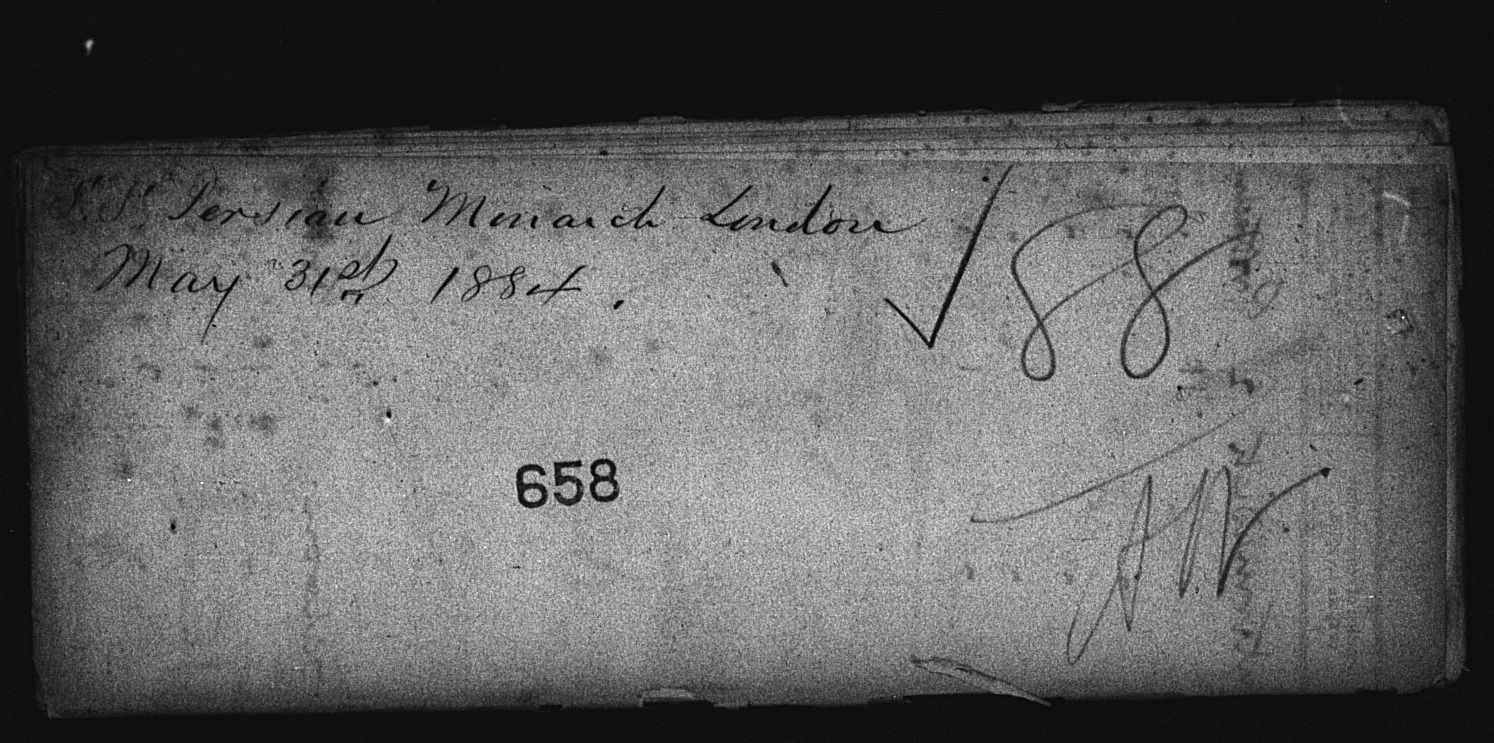 S.S. Persian Monarch London
May 31st 1884.
88
658